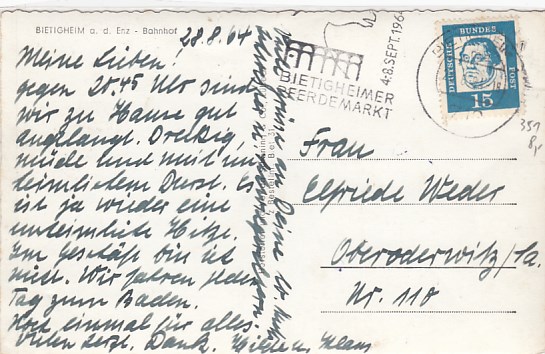 BIETIGHEIM a. d. Enz - Bahnhof
28.8.64
Meine Lieben!
gegen 20.45 Uhr sind
wir zu Hause gut
angelangt. Dreckig,
müde und mit un
heimlichem Durst. Es
ist ja wieder eine
unheimliche Hitze.
Im Geschäft bin ist
mies. Wir fahren jeden
Tag zum Baden.
Noch einmal für alles
vielen herzl. Dank.
4-8. SEPT. 196
BIETIGHEIMER
PFERDEMARKT
DEUTSCHE BUNDES POST
15
351
8,-
Frau
Elfriede Weder
Oberoderwitz/Sa.
Nr. 110